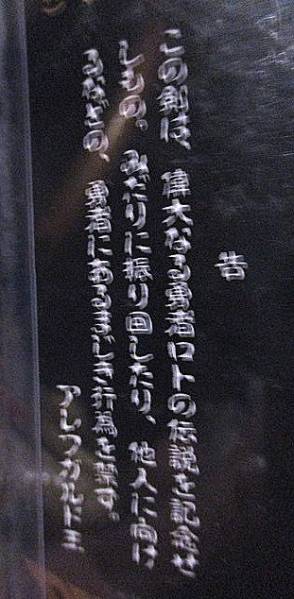 告
この剣は、偉大なる勇者ロトの伝説を記念せ
しもの。みだりに振り回したり、他人に向け
るなどの、勇者にあるまじき行為を禁ず。
アレフガルド王